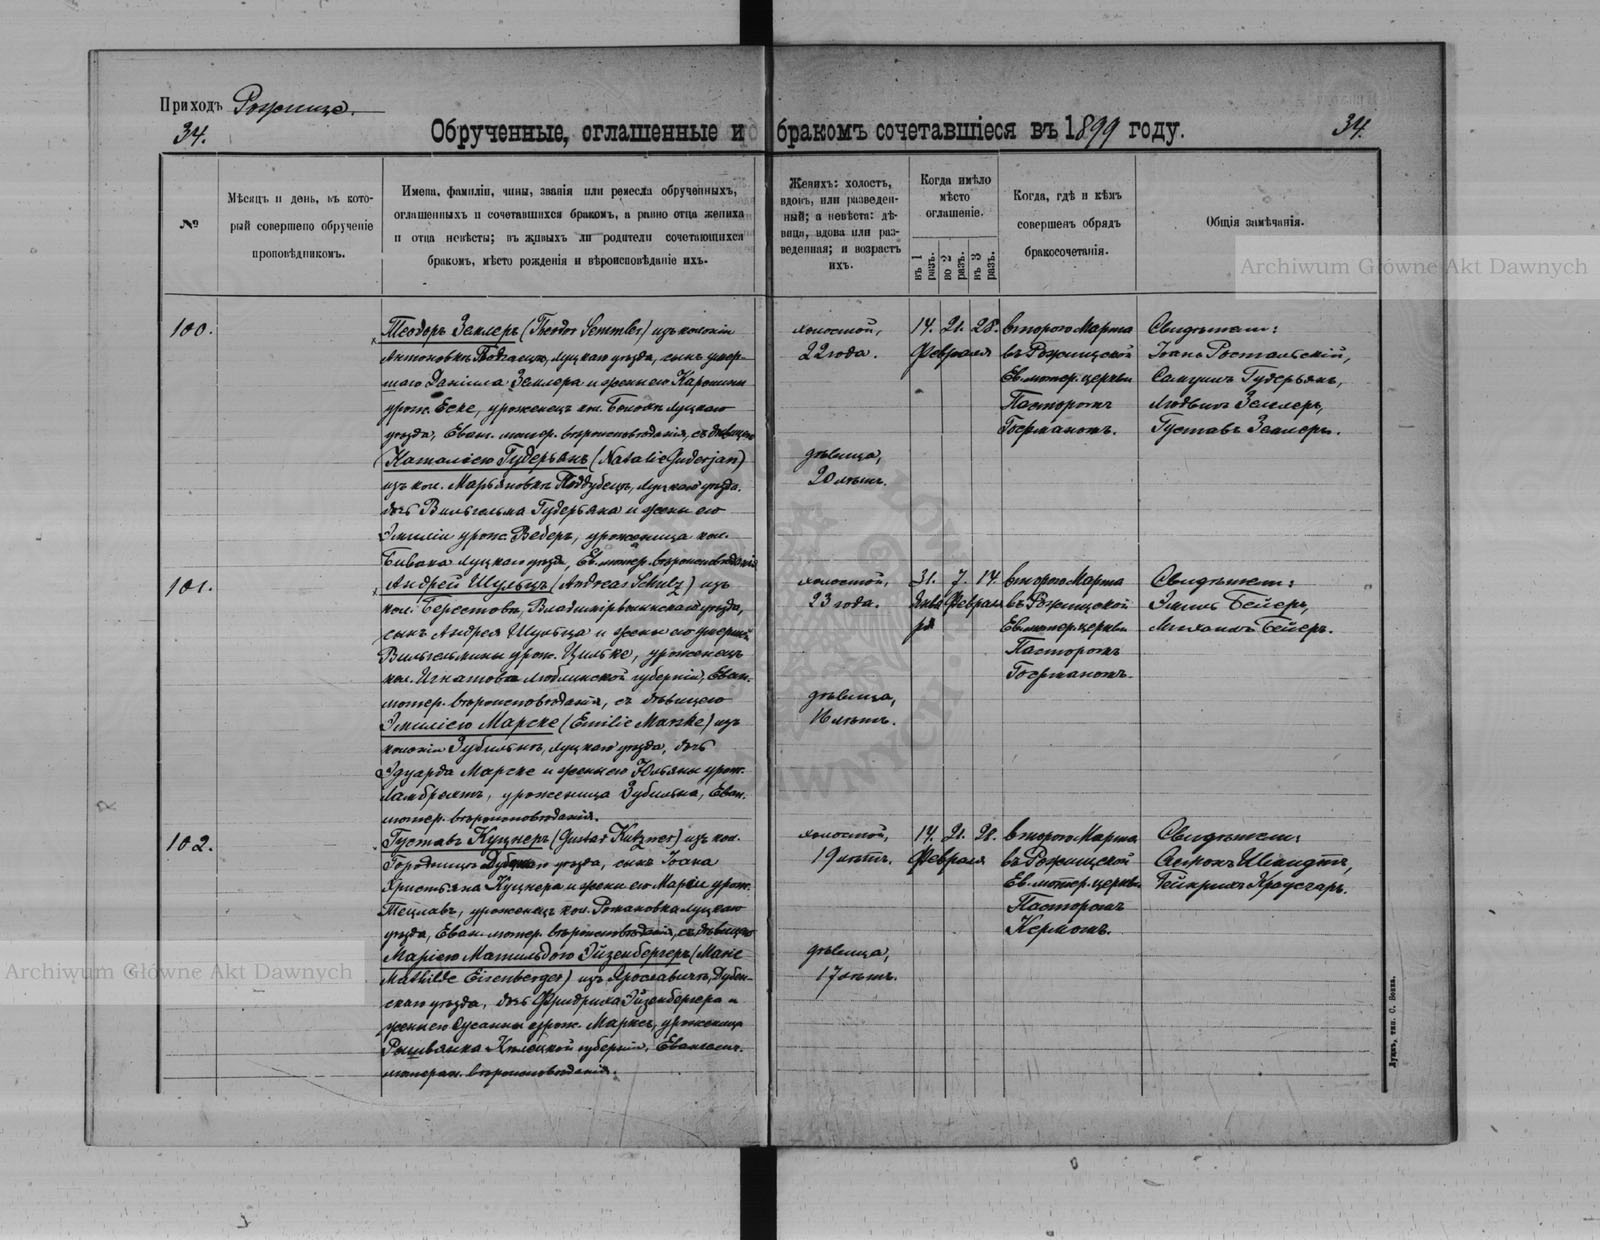 Приходъ Рожище.
34.
34.
Обрученные, оглашенные и бракомъ сочетавшіеся въ 1899 году.
№
Мѣсяцъ и день, въ кото-
рый совершено обрученіе
проповѣдникомъ.
Имена, фамиліи, чины, званія или ремесла обрученныхъ,
оглашенныхъ и сочетавшихся бракомъ, а равно отца жениха
и отца невѣсты; въ живыхъ ли родители сочетающихся
бракомъ, мѣсто рожденія и вѣроисповѣданіе ихъ.
Женихъ: холостъ,
вдовъ, или разведен-
ный; а невѣста: дѣ-
вица, вдова или раз-
веденная; и возрастъ
ихъ.
Когда имѣло
мѣсто
оглашеніе.
въ 1 разъ.
во 2 разъ.
въ 3 разъ.
Когда, гдѣ и кѣмъ
совершенъ обрядъ
бракосочетанія.
Общія замѣчанія.
100.
Теодоръ Землеръ (Theodor Semmler) изъ колоніи
Антоновки Луцкаго уѣзда, сынъ умер-
шаго Даніила Землера и жены его Каролины
урож. Еске, уроженецъ кол. Луцкаго
уѣзда, Еван. лютер. вѣроисповѣданія, съ дѣвицею
Наталіею Гудерьянъ (Natalie Guderjan)
изъ кол. Марьяновки Поддубецъ, Луцкаго уѣзда.
дочь Вильгельма Гудерьяна и жены его
Эмиліи урож. Веберъ, уроженица кол.
Луцкаго уѣзда, Ев. лютер. вѣроисповѣданія
холостой,
22 года.
дѣвица,
20 лѣтъ.
14. 21. 28.
Февраля
второго Марта
въ Рожищской
Ев. лютер. церкви
Пасторомъ
Германомъ.
Свидѣтели:
Іоанъ Ростальскій,
Самуилъ Гудерьянъ,
Людвигъ Землеръ,
Густавъ Землеръ.
101.
Андрей Шульцъ (Andreas Schulz) изъ
кол. Берестовъ, Владимірволынскаго уѣзда,
сынъ Андрея Шульца и жены его умершей
Вильгельмины урож. Цильке, уроженецъ
кол. Игнатова Люблинской губерніи, Еван.
лютер. вѣроисповѣданія, съ дѣвицею
Эмиліею Марске (Emilie Marske) изъ
колоніи Зубильно, Луцкаго уѣзда, дочь
Эдуарда Марске и жены его Юльяны урож.
Ламбрехтъ, уроженица Зубильна, Еван.
лютер. вѣроисповѣданія.
холостой,
23 года.
дѣвица,
16 лѣтъ.
31. 7. 14.
Янва Февраля
ря
второго Марта
въ Рожищской
Ев. лютер. церкви
Пасторомъ
Германомъ.
Свидѣтели:
Эмиль Бейеръ,
Михаилъ Бейеръ.
102.
Густавъ Куцнеръ (Gustav Kutzner) изъ кол.
Городница Дубенскаго уѣзда, сынъ Іоана
Христьяна Куцнера и жены его Маріи урож.
Тецлавъ, уроженецъ кол. Романовка Луцкаго
уѣзда, Еван. лютер. вѣроисповѣданія, съ дѣвицею
Маріею Матильдою Эйзенбергеръ (Marie
Mathilde Eisenberger) изъ Ярославичъ, Дубен-
скаго уѣзда, дочь Фридриха Эйзенбергера и
жены его Сусанны урож. Марксъ, уроженица
Кѣлецкой губерніи, Евангелич.
лютеран. вѣроисповѣданія.
холостой,
19 лѣтъ.
дѣвица,
17 лѣтъ.
14. 21. 28.
Февраля
второго Марта
въ Рожищской
Ев. лютер. церкви
Пасторомъ
Керномъ.
Свидѣтели:
Шмидтъ,
Гейнрихъ
Луцкъ, тип. С. Бокка.
Archiwum Główne Akt Dawnych
Archiwum Główne Akt Dawnych